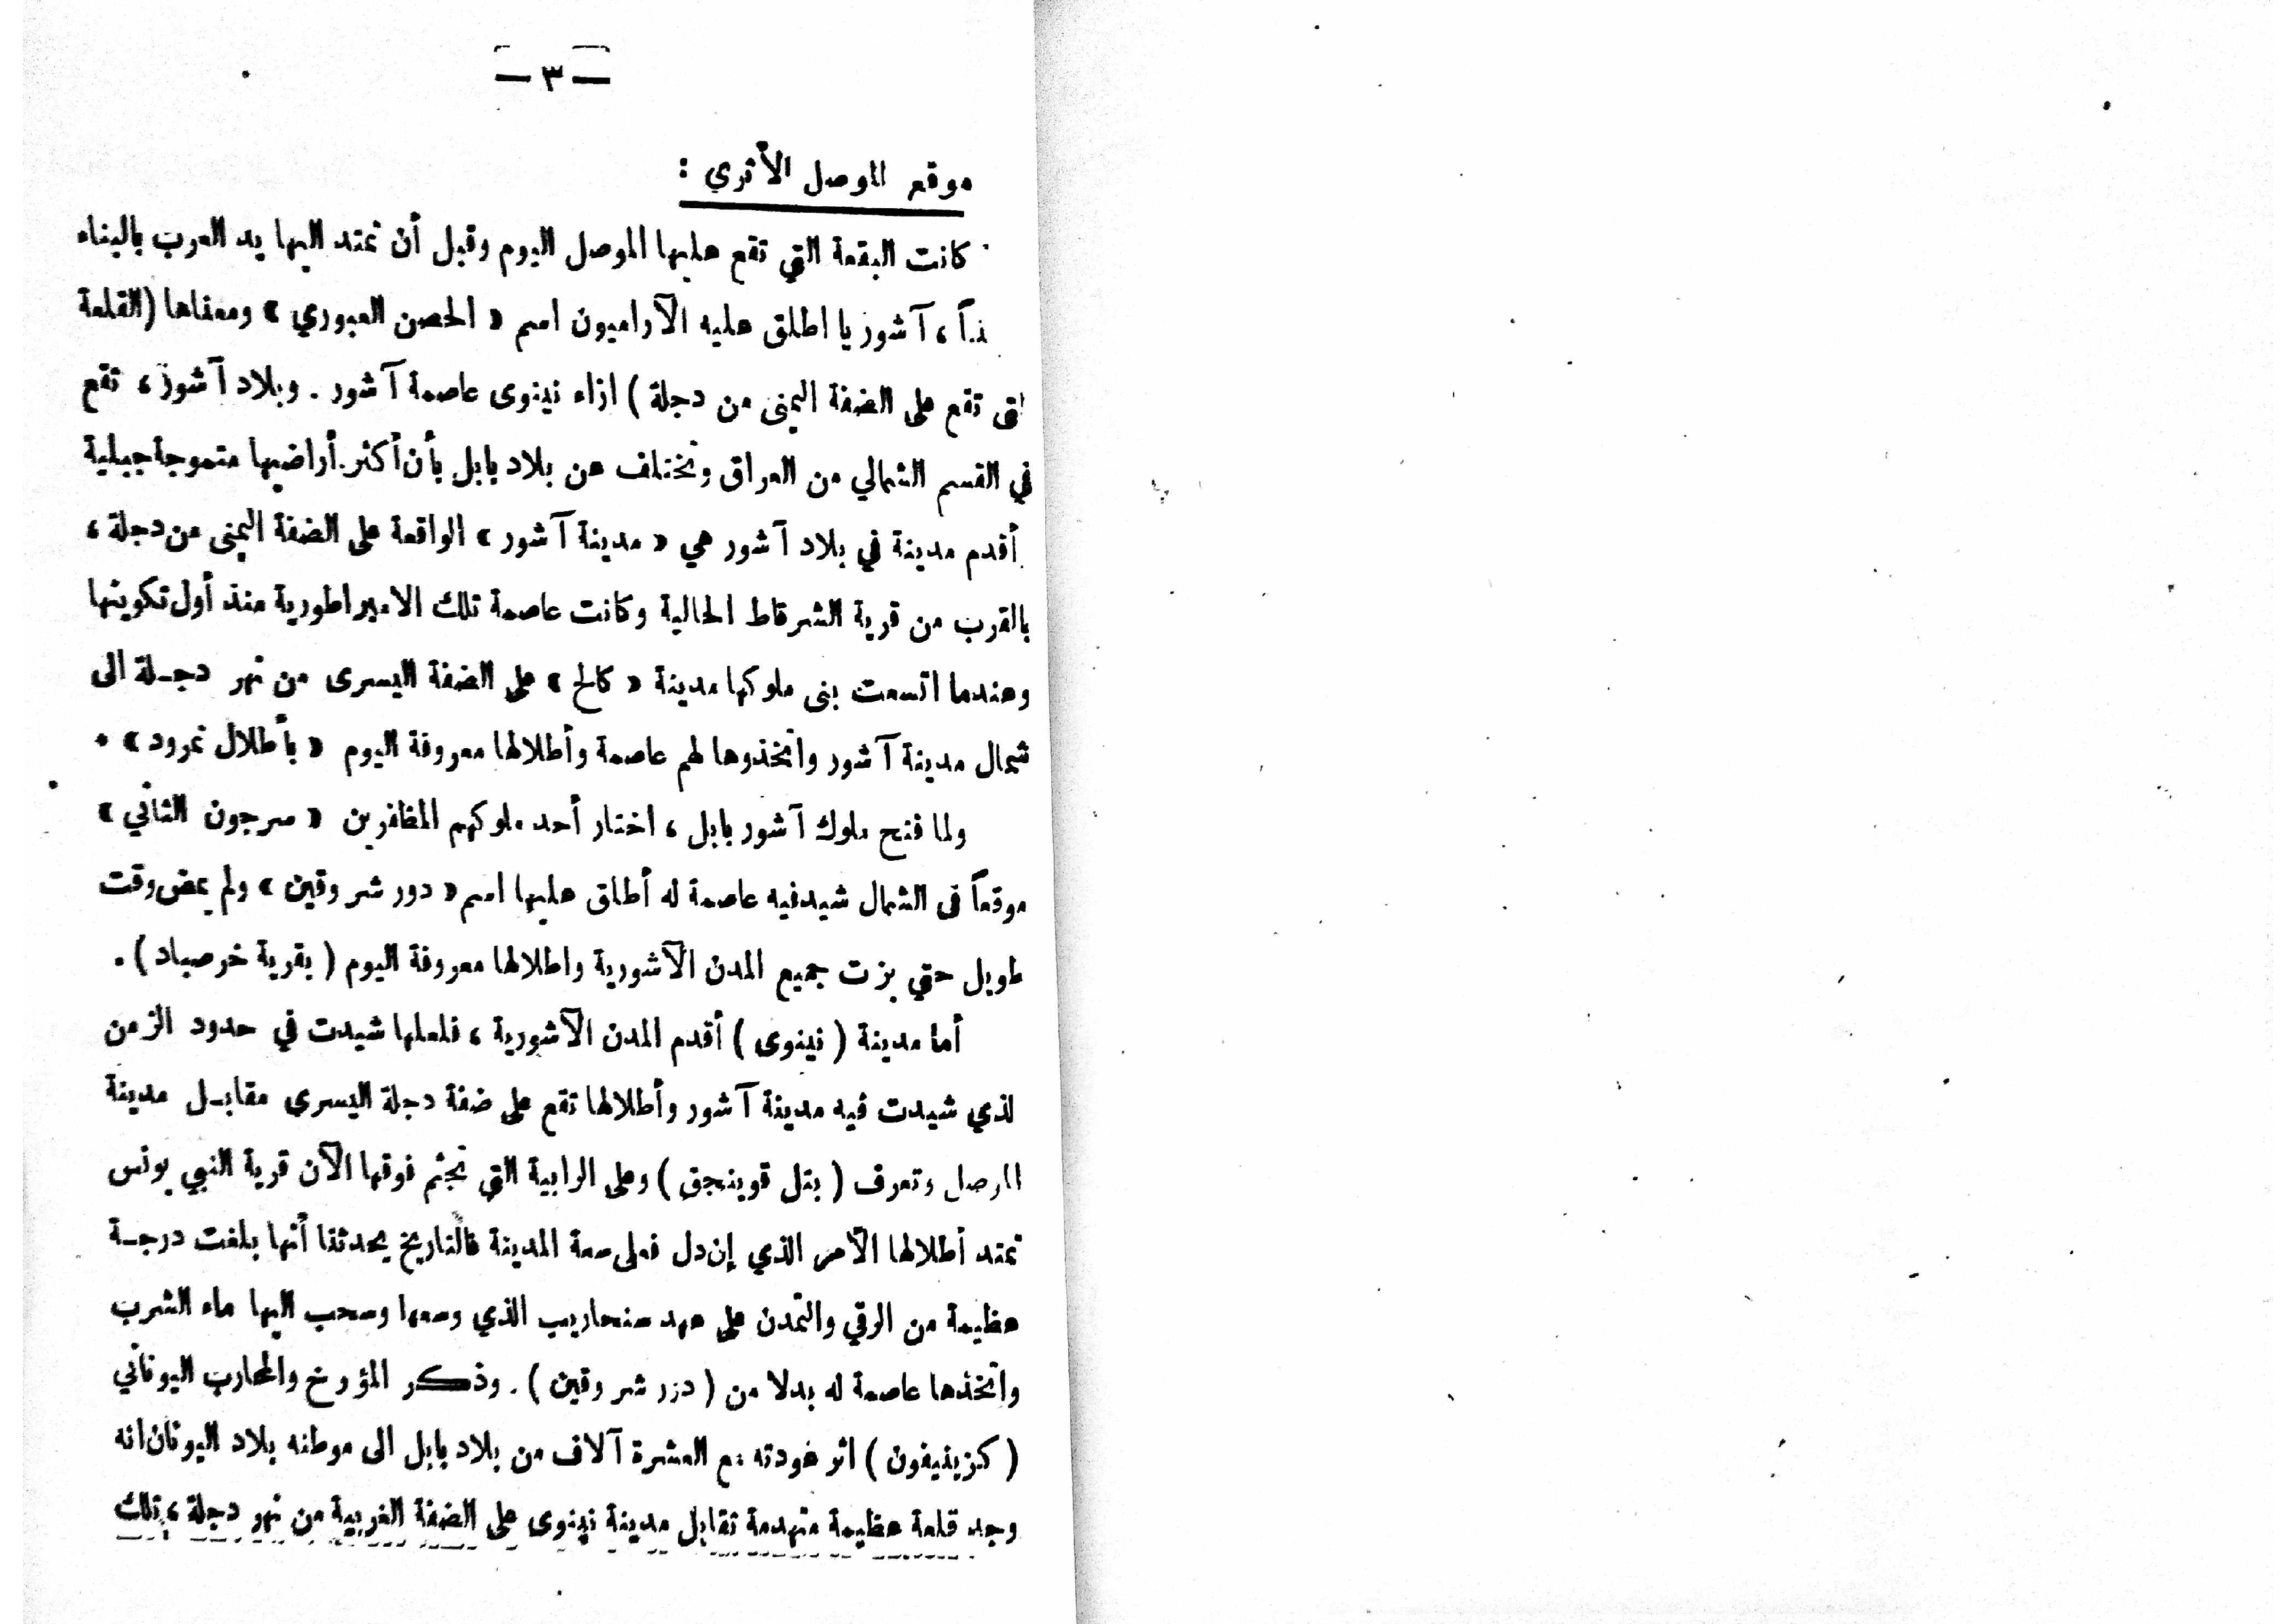 — ٣ —
موقع الموصل الأثري :
كانت البقعة التي تقع عليها الموصل اليوم وقبل أن تمتد اليها يد العرب بالبناء
آشوريا اطلق عليه الآراميون اسم « الحصن العبوري » ومعناها (القلعة
تقع على الضفة اليمنى من دجلة ) ازاء نينوى عاصمة آشور . وبلاد آشور ، تقع
في القسم الشمالي من العراق وتختلف عن بلاد بابل بأن أكثر أراضيها متموجة جبلية
أقدم مدينة في بلاد آشور هي « مدينة آشور » الواقعة على الضفة اليمنى من دجلة ،
بالقرب من قرية الشرقاط الحالية وكانت عاصمة تلك الامبراطورية منذ أول تكوينها
وعندما اتسعت بنى ملوكها مدينة « كالح » على الضفة اليسرى من نهر دجـلة الى
شمال مدينة آشور واتخذوها لهم عاصمة وأطلالها معروفة اليوم « بأطلال نمرود » .
ولما فتح ملوك آشور بابل ، اختار أحد ملوكهم المظافرين « سرجون الثاني »
موقعاً فى الشمال شيدفيه عاصمة له أطلق عليها اسم « دور شروقين » ولم يمض وقت
طويل حتي بزت جميع المدن الآشورية واطلالها معروفة اليوم ( بقرية خرصباد ) .
أما مدينة ( نينوى ) أقدم المدن الآشورية ، فلعلها شيدت في حدود الزمن
لذي شيدت فيه مدينة آشور وأطلالها تقع على ضفة دجلة اليسرى مقابـل مدينة
الموصل وتعرف ( بتل قوينجق ) وعلى الرابية التي تجثم فوقها الآن قرية النبي يونس
تمتد أطلالها الأمر الذي إن دل فعلى سعة المدينة فالتاريخ يحدثنا أنها بلغت درجـة
عظيمة من الرقي والتمدن على عهد سنحاريب الذي وسعها وسحب اليها ماء الشرب
واتخذها عاصمة له بدلا من ( دور شروقين ) . وذكر المؤرخ والمحارب اليوناني
( كزينيفون ) اثر عودته مع العشرة آلاف من بلاد بابل الى موطنه بلاد اليونان انه
وجد قلعة عظيمة متهدمة تقابل مدينة نينوى على الضفة الغربية من نهر دجلة ، تلك